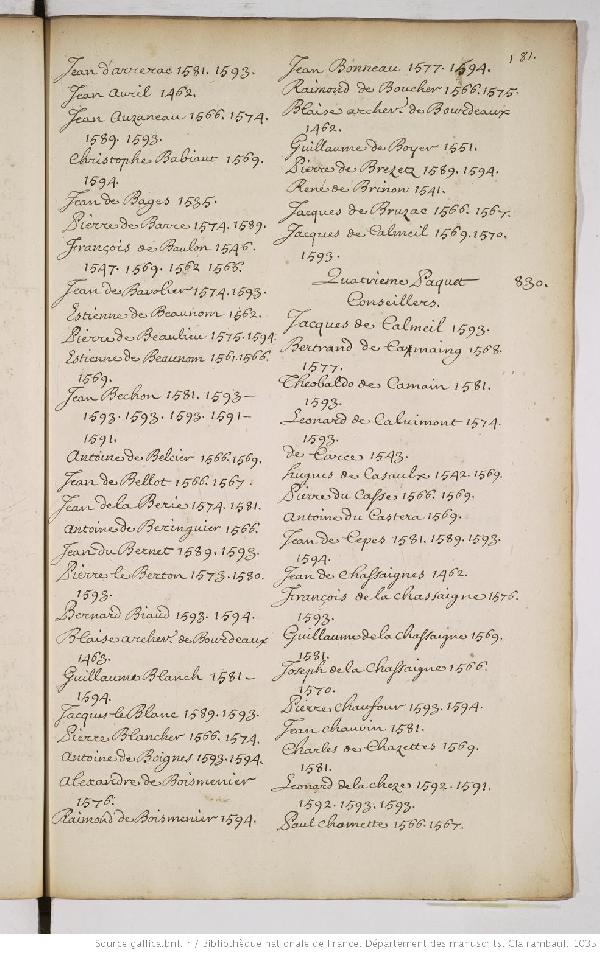 181.
Jean d'arrerac 1581. 1593.
Jean Avril 1462.
Jean Auzaneau 1566. 1574.
1589. 1593.
Christophe Babiaut 1569.
1594.
Jean de Bages 1535.
Pierre de Barre 1574. 1589.
François de Baulon 1546.
1547. 1569. 1562 1566.
Jean de Bavolier 1574. 1593.
Estienne de Beaunom 1562.
Pierre de Beaulieu 1575. 1594.
Estienne de Beaunom 1561. 1566.
1569.
Jean Bechon 1581. 1593-
1593. 1593. 1593. 1591-
1591.
Antoine de Belcier 1566. 1569.
Jean de Bellot 1566. 1567.
Jean de la Berie 1574. 1581.
Antoine de Beringuier 1566.
Jean du Bernet 1589. 1593.
Pierre le Berton 1573. 1580.
1593.
Bernard Biaud 1593. 1594.
Blaise archev. de Bourdeaux
1463.
Guillaume Blanch 1581-
1594.
Jacques le Blanc 1589. 1593.
Pierre Blancher 1566. 1574.
Antoine de Boignes 1593. 1594.
Alexandre de Boismenier
1576.
Raimond de Boismenier 1594.
Jean Bonneau 1577. 1594.
Raimond de Boucher 1566. 1575.
Blaise archev. de Bourdeaux
1462.
Guillaume de Boyer 1551.
Pierre de Brezetz 1589. 1594.
René de Brinon 1541.
Jacques de Bruzac 1566. 1567.
Jacques de Calmeil 1569. 1570.
1593.
Quatrieme Paquet 830.
Conseillers.
Jacques de Calmeil 1593.
Bertrand de Camaing 1568.
1577.
Theobaldo de Camain 1581.
1593.
Leonard de Caluimont 1574.
1593.
de Carce 1543.
hugues de Casaulx 1542. 1569.
Pierre du Casse 1566. 1569.
Antoine du Castera 1569.
Jean de Cepes 1581. 1589. 1593.
1594.
Jean de Chassaignes 1462.
François de la chassaigne 1576.
1593.
Guillaume de la Chassaigne 1569.
1581.
Joseph de la Chassaigne 1566.
1570.
Pierre Chaufour 1593. 1594.
Jean chauvin 1581.
Charles de Chazettes 1569.
1581.
Leonard de la cheze 1592. 1591.
1592. 1593. 1593.
Paul chamette 1566. 1567.
Source gallica.bnf.fr / Bibliothèque nationale de France. Département des manuscrits. Clairambault. 1035